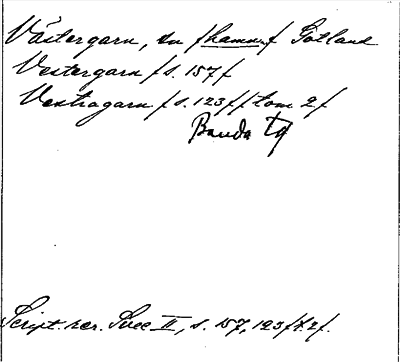 Västergarn, sn /hamn/ Gotland
Vestergarn /s. 157/
Vestragarn /s. 123/ / tom 2/
Banda tg
Script. rer. Svec II, s. 157, 123 /t. 2/.